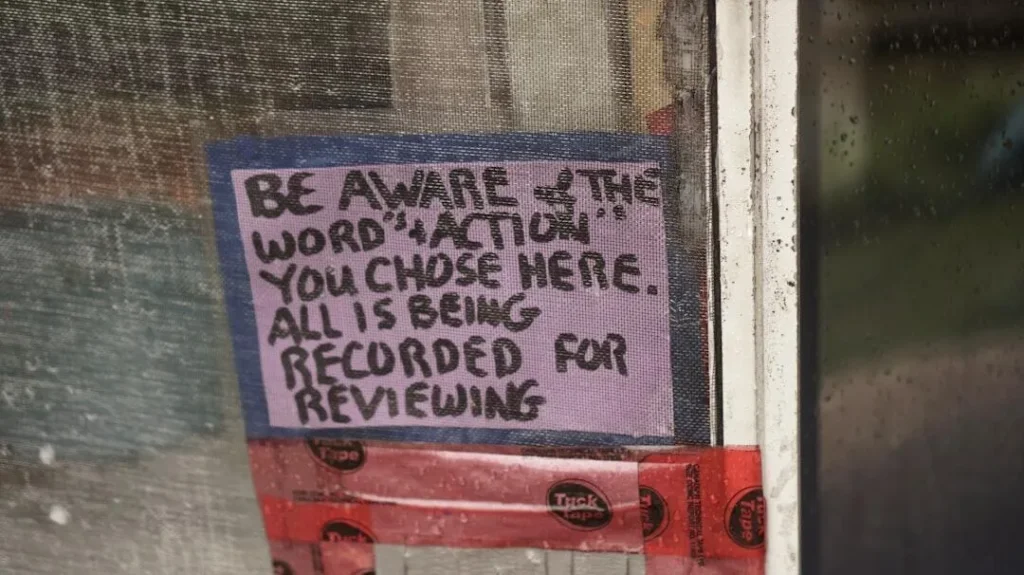 BE AWARE of THE
WORD"s & ACTION"
YOU CHOSE HERE.
ALL IS BEING
RECORDED FOR
REVIEWING
Tape
Tuck
Tape
Tuck
Tape
Tuck
Tape
Tuck